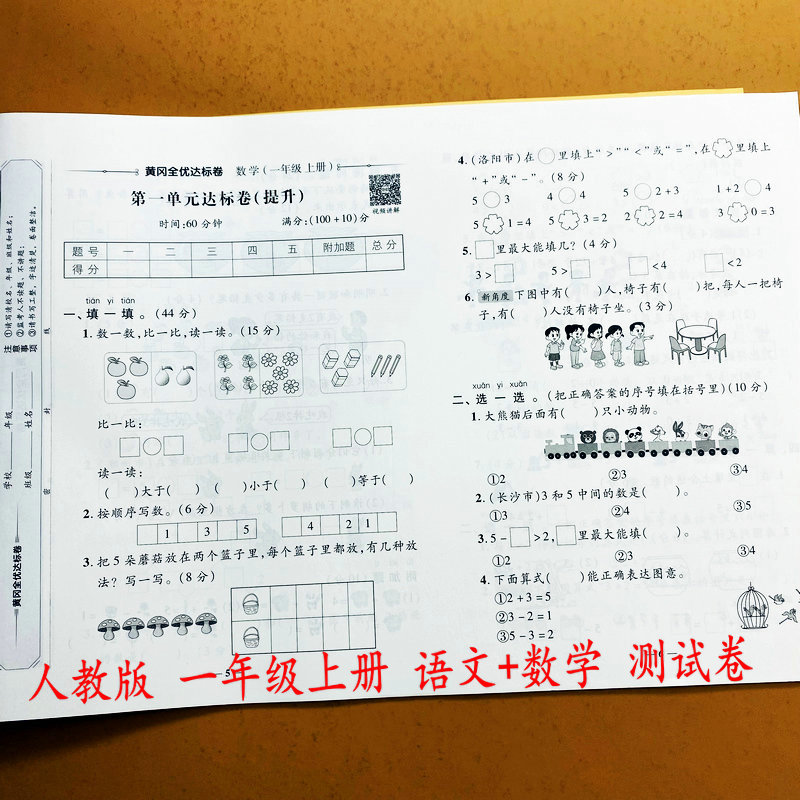 学校 年级 班级 姓名
注意事项
①请写清校名、年级、班级和姓名；
②监考人不读题，不讲题；
③请书写工整，字迹清楚，卷面整洁。
密 封 线
黄冈全优达标卷
黄冈全优达标卷 数学(一年级上册)
第一单元达标卷(提升)
视频讲解
时间:60分钟 满分:(100+10)分
题号 一 二 三 四 五 附加题 总分
得分
tián yi tián
一、填一填。(44分)
1.数一数,比一比,读一读。(15分)
比一比:
读一读:
( )大于( ) ( )小于( ) ( )等于( )
2.按顺序写数。(6分)
1 3 5 4 2 1
3.把5朵蘑菇放在两个篮子里,每个篮子里都放,有几种放
法?写一写。(8分)
5
4.(洛阳市)在○里填上“>”“<”或“=”,在 里填上
“+”或“-”。(8分)
5○3 4○5 5○2+3 1+2○4
5 1=4 5 3=2 2 2=4 3 0=3
5.□里最大能填几?(4分)
3>□ 5>□ □<4 □<2
6.新角度 下图中有( )人,椅子有( )把,每人一把椅
子,有( )人没有椅子坐。(3分)
xuǎn yi xuǎn
二、选一选。(把正确答案的序号填在括号里)(10分)
1.大熊猫后面有( )只小动物。
①2 ②3 ③4
2.(长沙市)3和5中间的数是( )。
①3 ②4 ③5
3.5-□>2,□里最大能填( )。
①2 ②3 ③4
4.下面算式( )能正确表达图意。
①2+3=5
②3-2=1
③5-3=2
人教版 一年级上册 语文+数学 测试卷